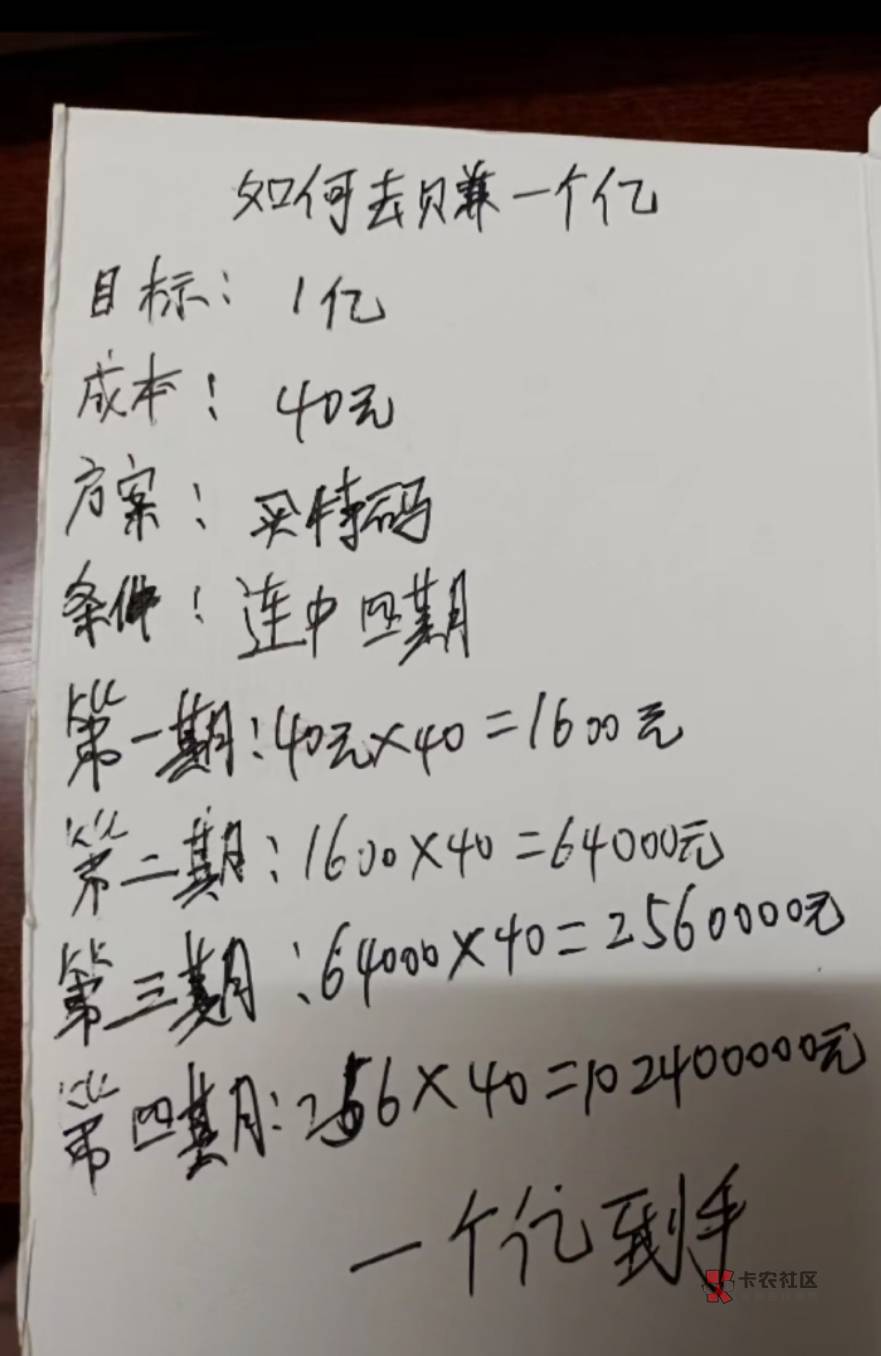 如何去赚一个亿
目标：1亿
成本：40元
方案：买特码
条件：连中四期
第一期：40元×40=1600元
第二期：1600×40=64000元
第三期：64000×40=2560000元
第四期：256×40=102400000元
一个亿到手
卡农社区